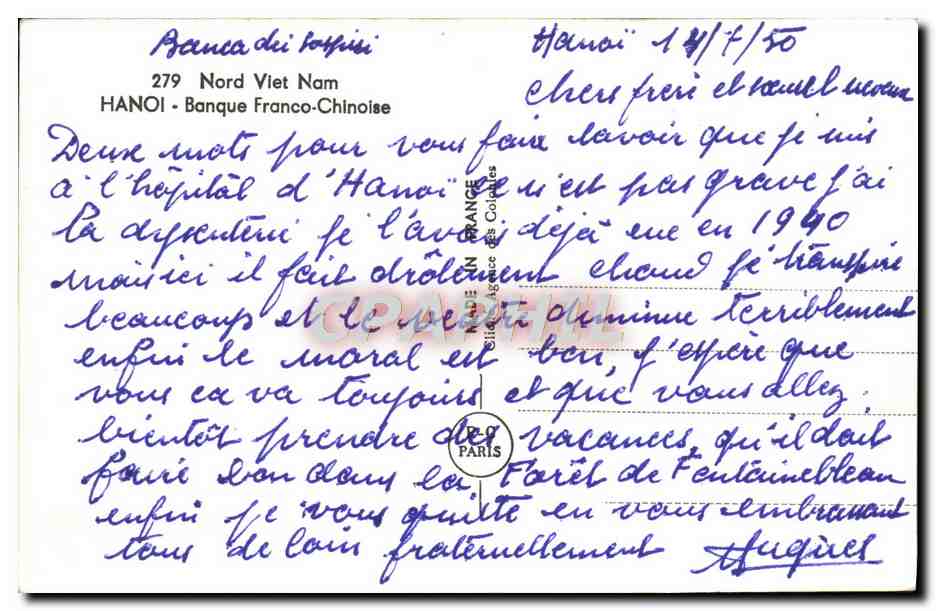 Hanoï 14/7/50
279 Nord Viet Nam
HANOI - Banque Franco-Chinoise
Chers frère et soeur et neveux
Deux mots pour vous faire savoir que je suis
à l'hôpital d'Hanoï ce n'est pas grave j'ai
la dysenterie je l'avais déjà eue en 1940
mais ici il fait drôlement chaud je transpire
beaucoup et le ventre diminue terriblement
enfin le moral est bon, j'espère que
vous ca va toujours et que vous allez
bientôt prendre des vacances, qu'il doit
faire bon dans la Forêt de Fontainebleau
enfin je vous quitte en vous embrassant
tous de loin fraternellement Hugues
MADE IN FRANCE
Cliché Agence des Colonies
P-C
PARIS
CPAPHIL